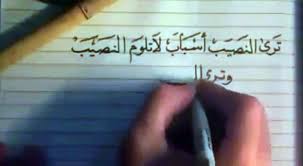 تَرىٰ النَصيبَ أَسْبابَ لاتلومَ النَصيْبَ
وتریٰ ال